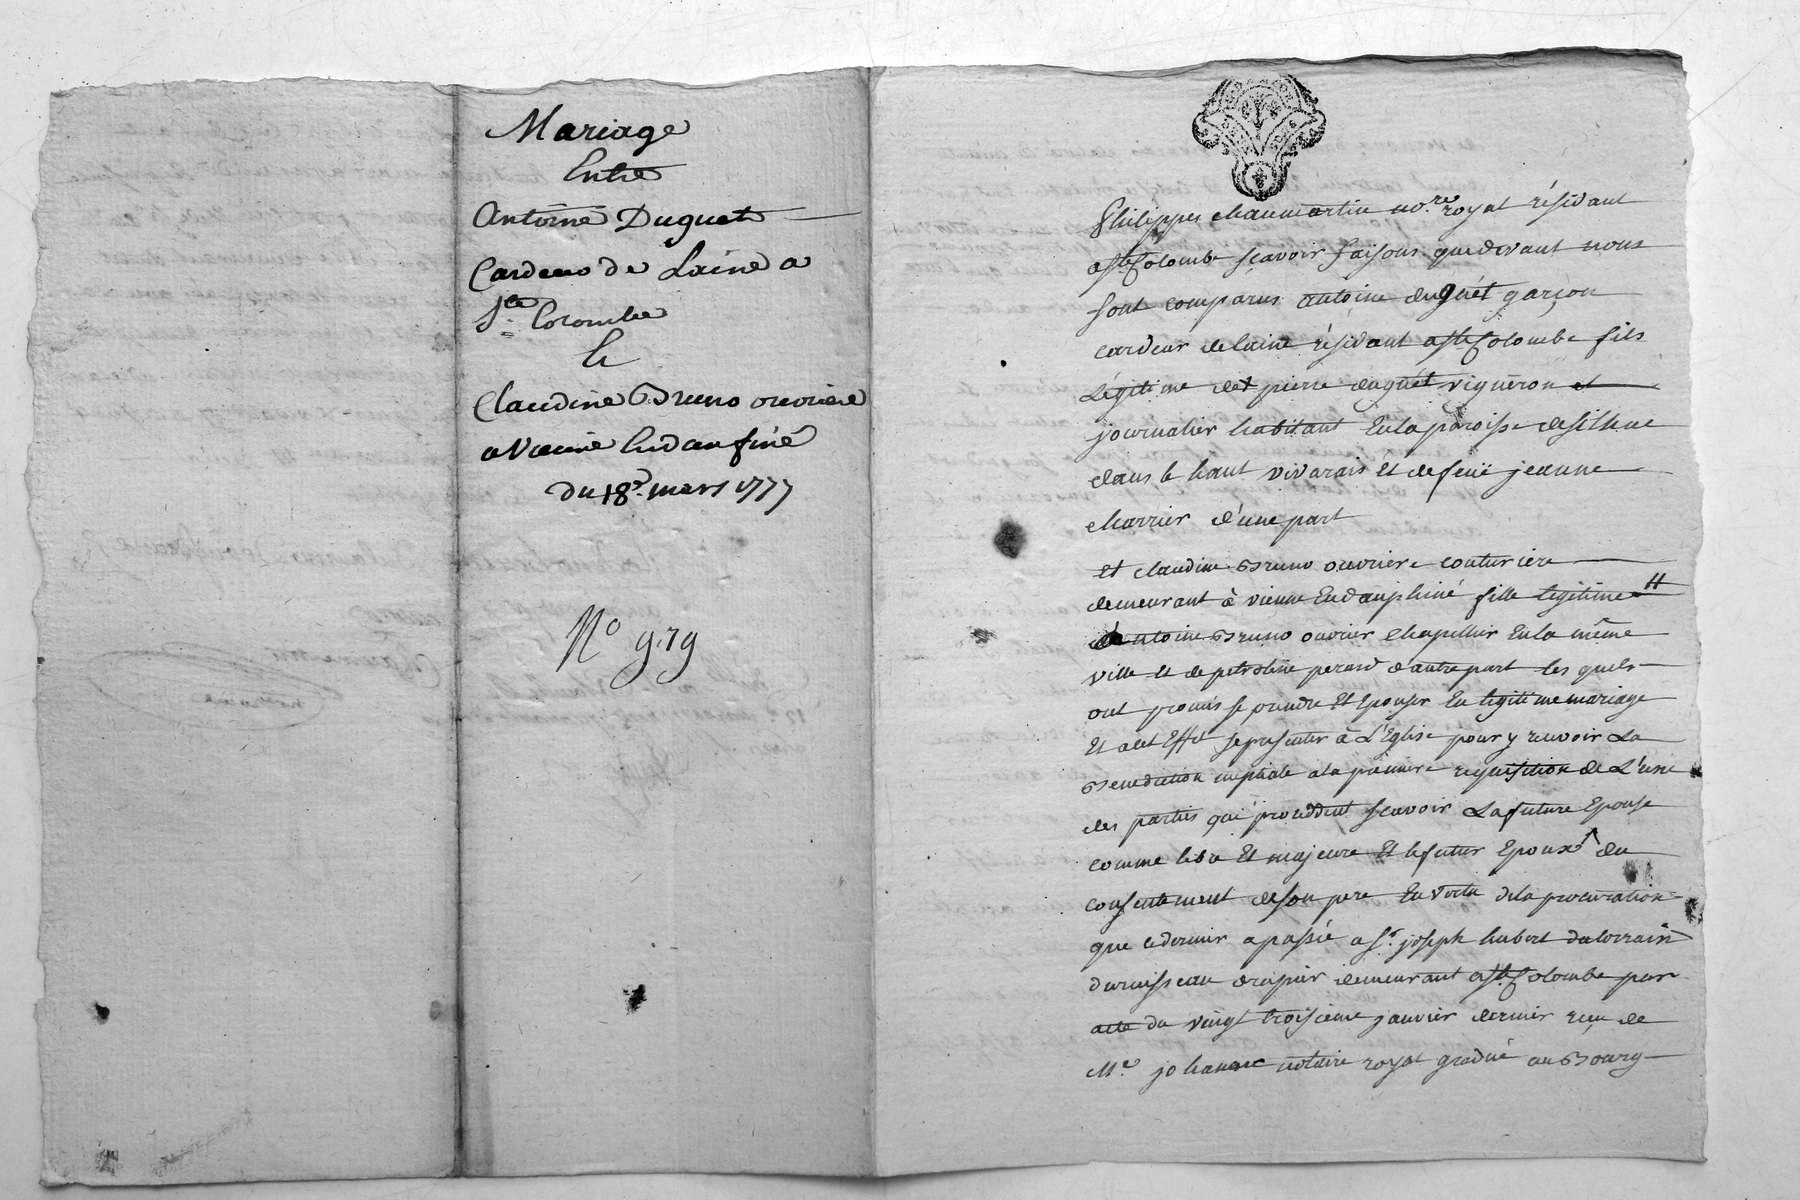 Mariage
Entre
Antoine Duguet
Cardeur de Laine a
Ste Colombe
Et
Claudine Bruno ouvriere
a Vienne En daufiné
du 18e. mars 1777
No 979
Philippes chaumartin nore. royal résidant
a ste Colombe scavoir faisons que devant nous
sont comparus antoine duguét garçon
cardeur de laine résidant a ste Colombe fils
Légitime de pierre duguét vigneron et
journalier habitant En la paroisse de silhac
dans le haut vivarais Et de feüe jeanne
charrier d'une part
Et claudine Bruno ouvriere couturiere
demeurant à vienne En dauphiné fille legitime
d'antoine Bruno ouvrier chapellier En la même
ville Et de petroline perard d'autre part les quels
ont promis se prendre Et Epouser En legitime mariage
Et a cet Effet se presenter à L'Eglise pour y recevoir La
Benediction nuptiale a la premiere requisition de L'une
des parties qui procedent scavoir La future Epouse
comme libre Et majeure Et le futur Epoux du
consentement de son pere En vertu de la procuration
que ce dernier a passée a sr. joseph hubert dalorrain
duruisseau drapier demeurant a ste Colombe par
acte du vingt troisieme janvier dernier reçu de
Me johannc notaire royal gradué au Bourg